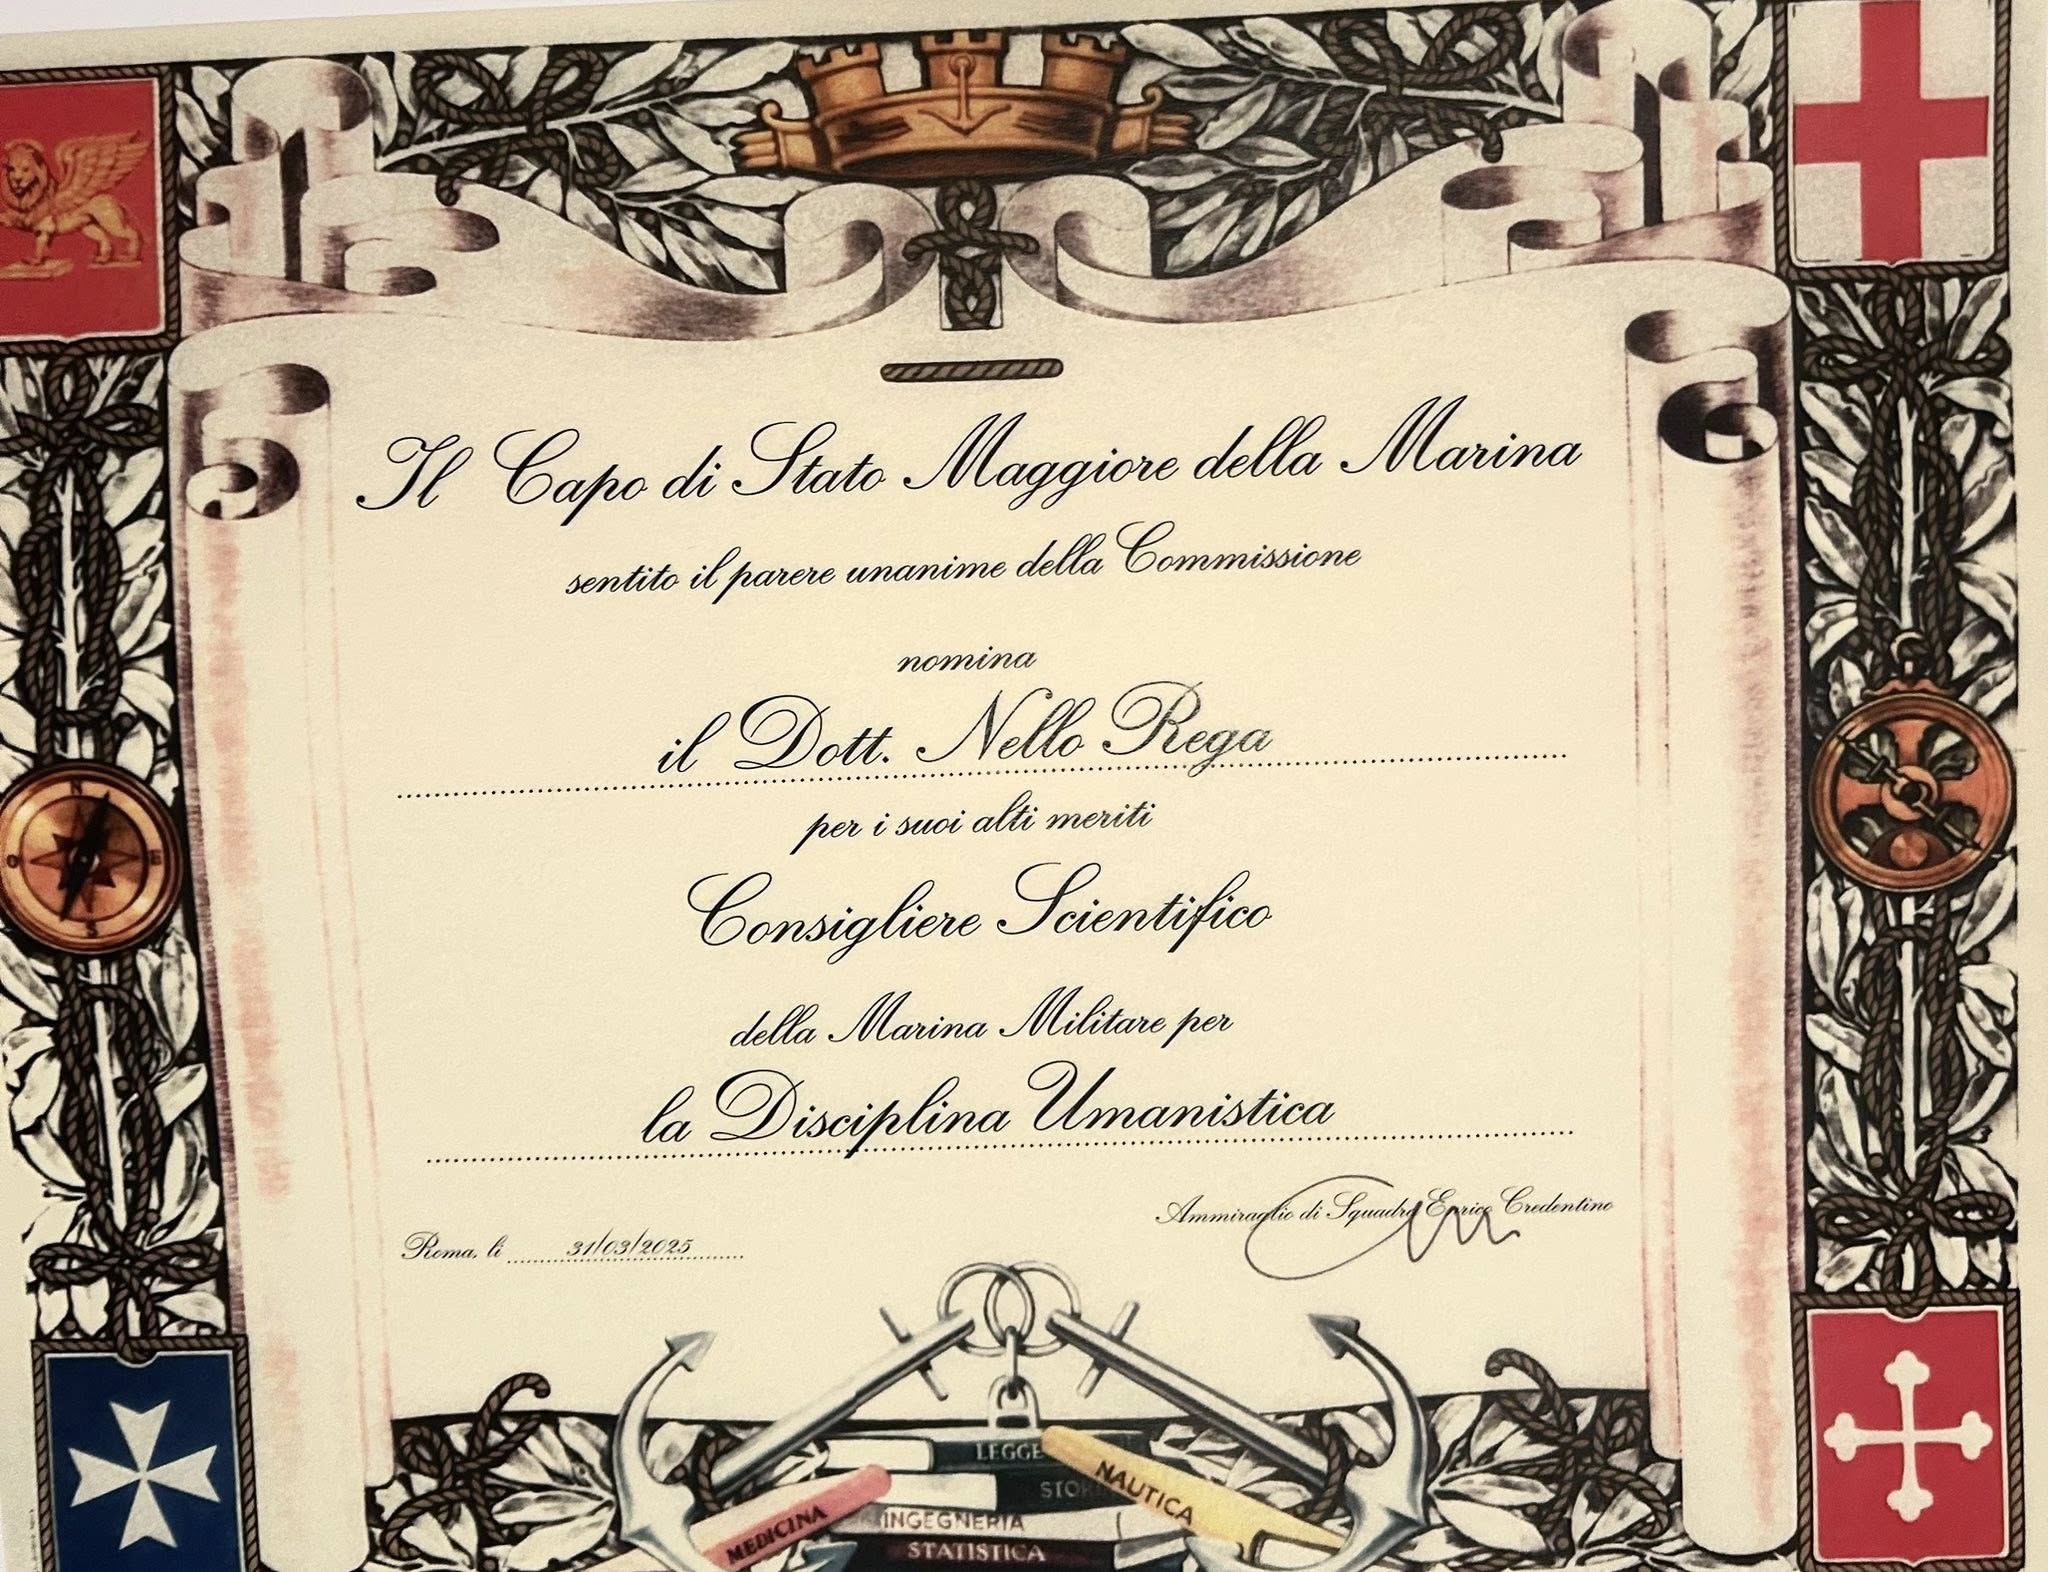 Il Capo di Stato Maggiore della Marina
sentito il parere unanime della Commissione
nomina
il Dott. Nello Rega
per i suoi alti meriti
Consigliere Scientifico
della Marina Militare per
la Disciplina Umanistica
Ammiraglio di Squadra Enrico Credentino
Roma, li 31/03/2025
N
O E
S
LEGGE
STOR
NAUTICA
MEDICINA
INGEGNERIA
STATISTICA